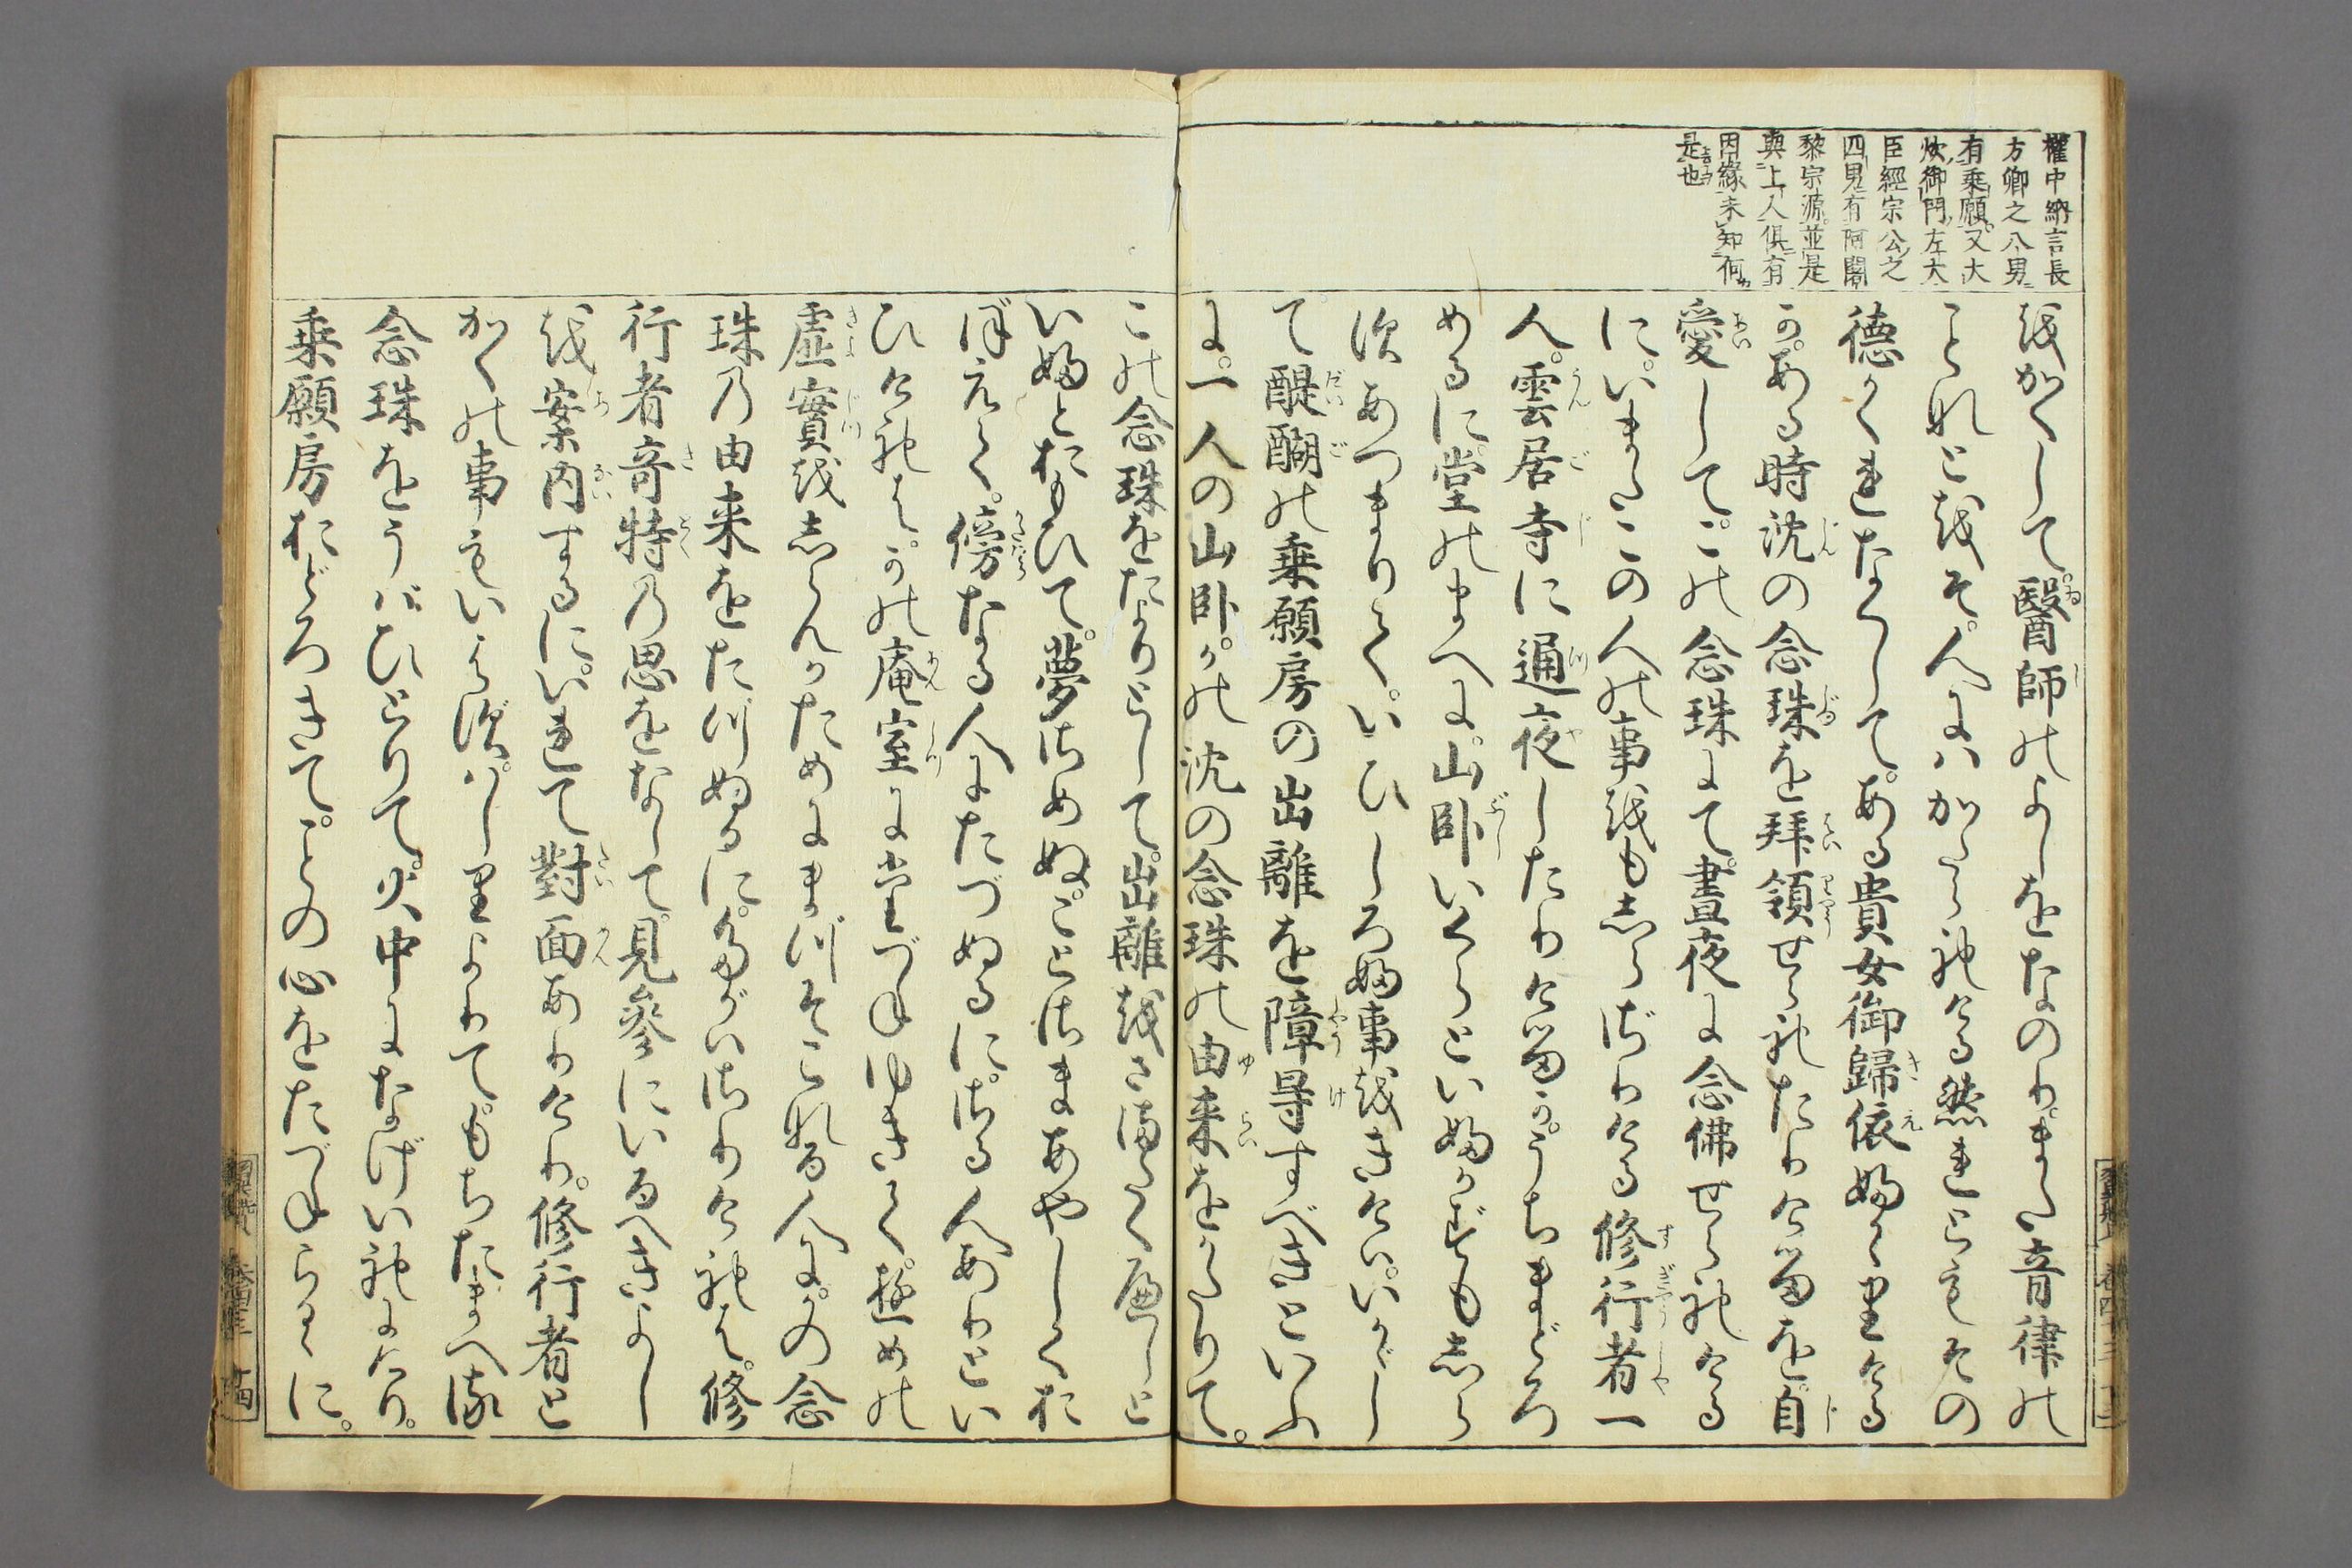 權中納言長
方卿之八男
有乗願又大
炊御門左大
臣經宗公之
四男有阿闍
黎宗源並是
與上人俱有
因縁未知何
是也
をかくして。醫師のよしをなのり。また音律の
ことなとをそ。人にはかたられける。然れともその
徳かくれなくして。ある貴女御歸依ふかくりける
か。ある時沈の念珠を拜領せられたりけるを。自
愛して。この念珠にて。晝夜に念佛せられける
に。いまたこの人の事をもしらざりける修行者一
人。雲居寺に通夜したりけるか。うちまどろ
めるに。堂のまへに。山臥いくらといふかずもしら
すあつまりて。いひしろふ事をきけは。いかゞし
て醍醐の乗願房の出離を障㝵すべきといふ
に。一人の山臥。かの沈の念珠の由来をかたりて。
この念珠をたよりとして。出離をさまたくへしと
いふとおもひて。夢さめぬ。ことさまあやしくお
ぼえて。傍なる人にたづぬるに。さる人ありとい
ひけれは。かの庵室にたづねゆきて。夢の
虚實をしらんかためにまづそこなる人に。かの念
珠の由来をたづぬるに。たがはさりけれは。修
行者奇特の思をなして。見參にいるへきよし
を案内するに。いれて對面ありけり。修行者と
かくの事もいはず。はしりよりて。もちたまへる
念珠をうばひとりて。火中になげいれにけり。
乗願房おどろきて。ことの心をたづねらるゝに。